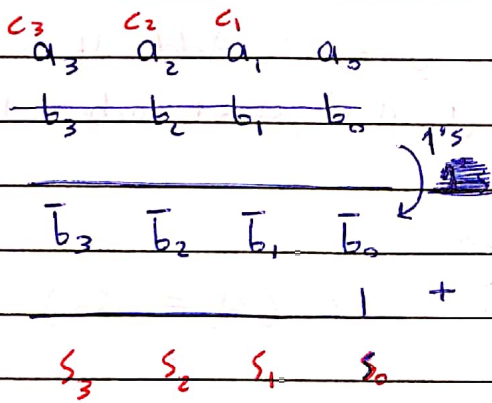 c₃ c₂ c₁
a₃ a₂ a₁ a₀
b₃ b₂ b₁ b₀
1's
b̄₃ b̄₂ b̄₁ b̄₀
1 +
s₃ s₂ s₁ s₀